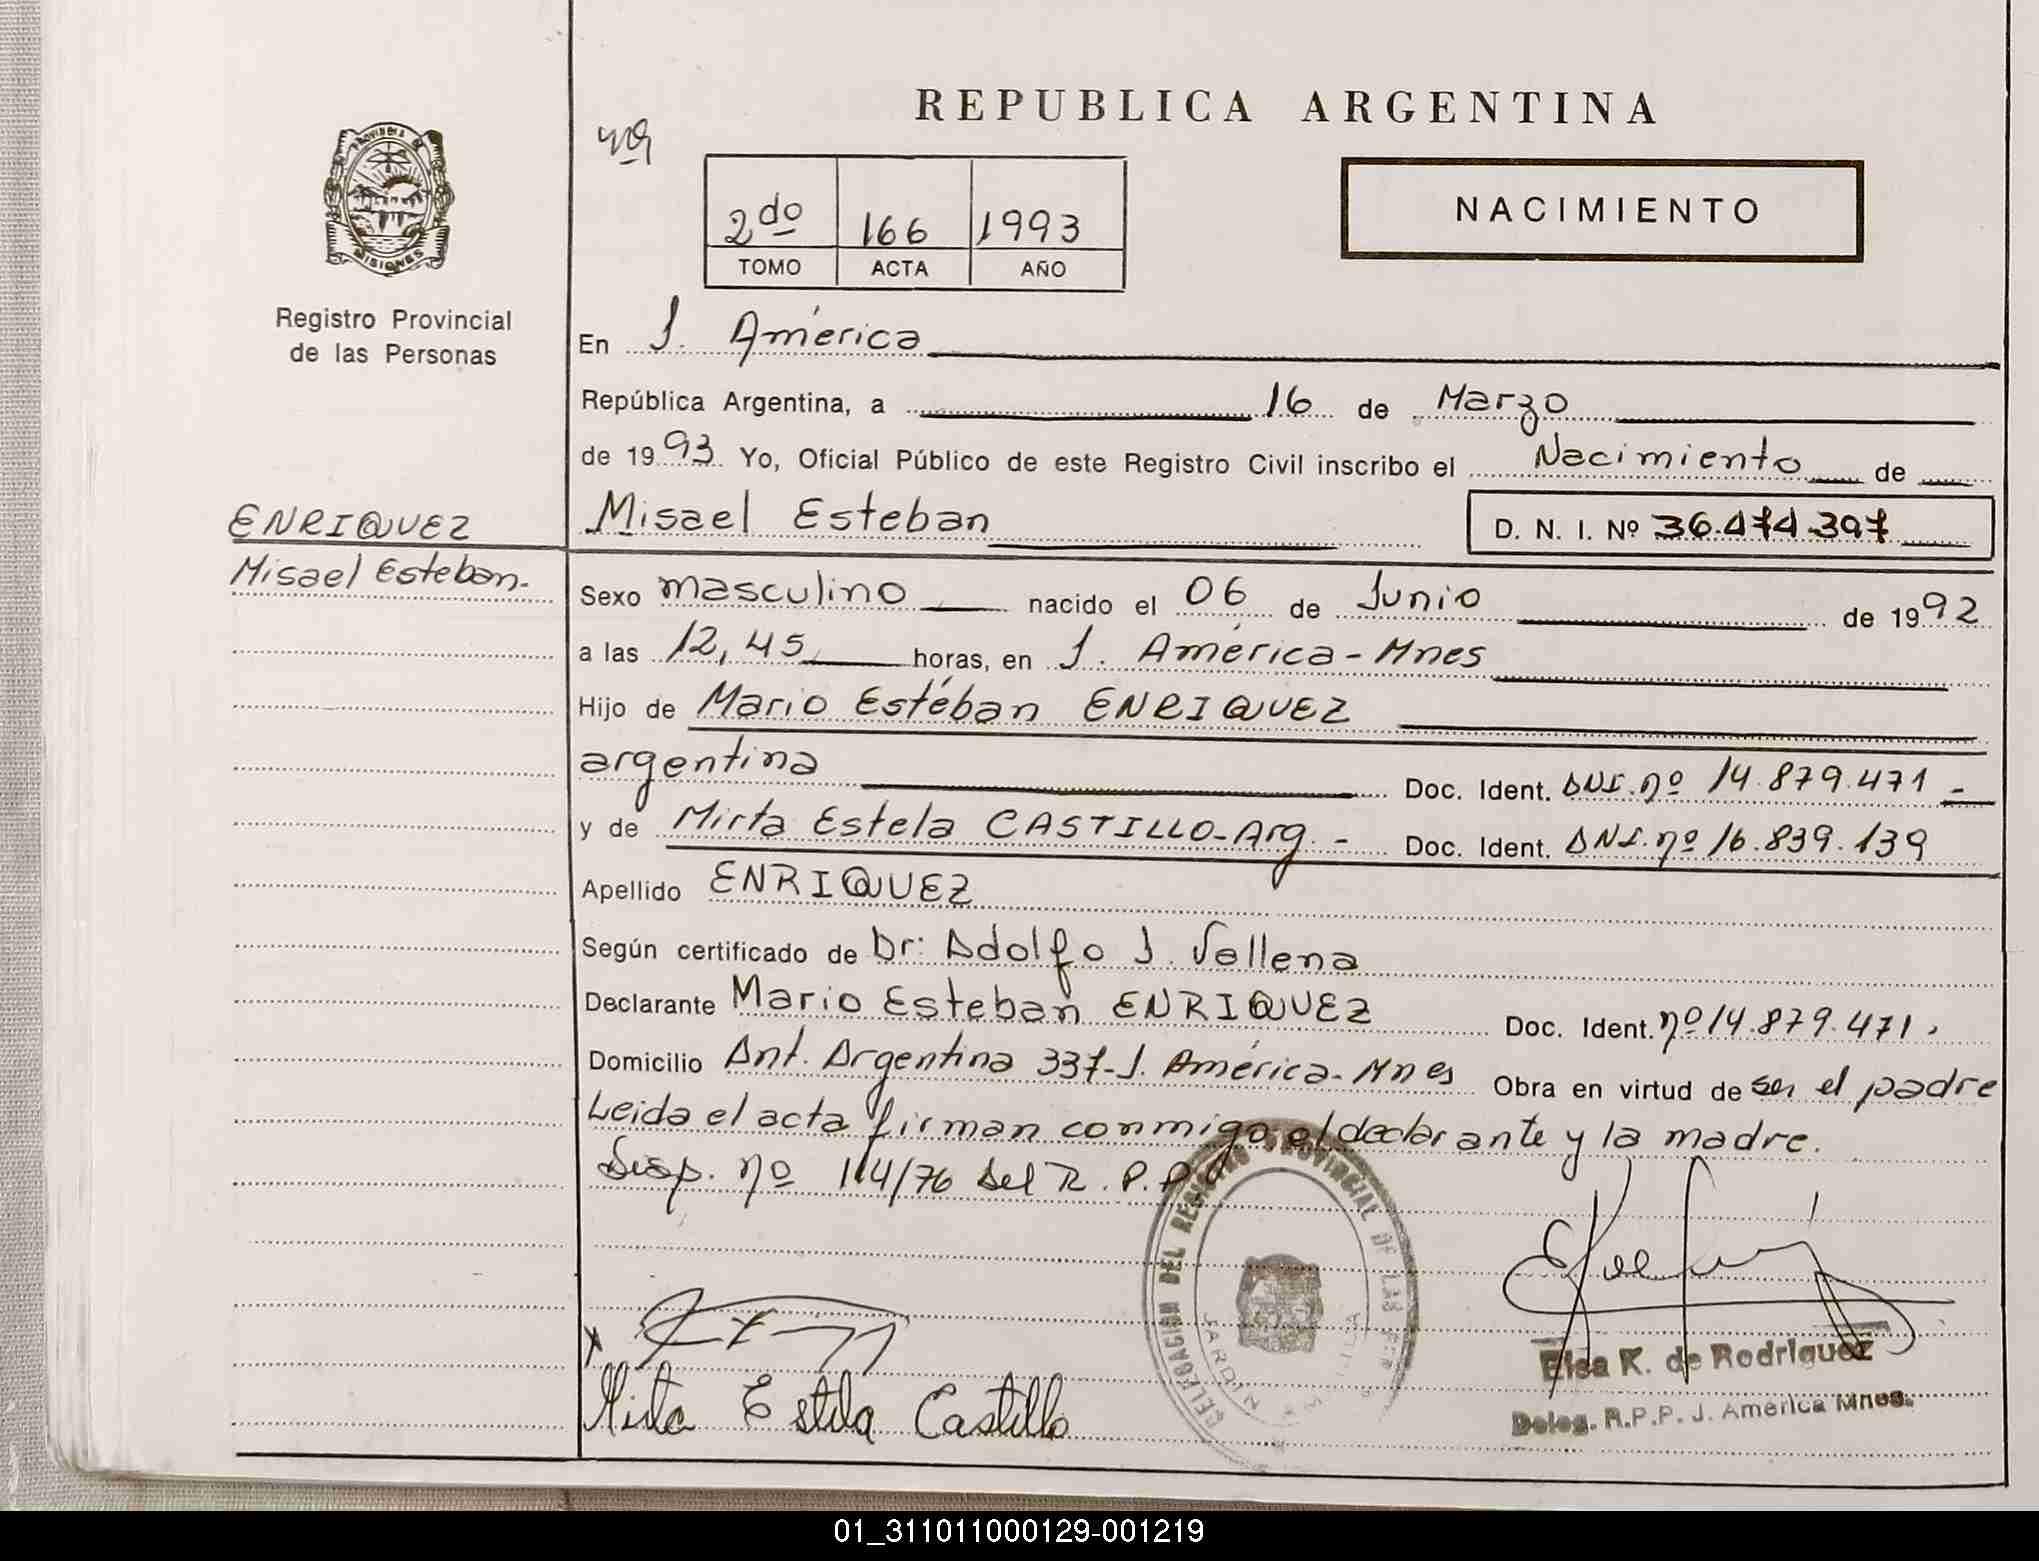 REPUBLICA ARGENTINA
PROVINCIA DE
MISIONES
Registro Provincial
de las Personas
2do 166 1993
TOMO ACTA AÑO
NACIMIENTO
En J. América
República Argentina, a 16 de Marzo
de 1993 Yo, Oficial Público de este Registro Civil inscribo el Nacimiento de
ENRIQUEZ
Misael Esteban.
Misael Esteban D. N. I. Nº 36.474.397
Sexo masculino nacido el 06 de Junio de 1992
a las 12,45 horas, en J. América - Mnes
Hijo de Mario Estéban ENRIQUEZ
argentina Doc. Ident. DNI. nº 14.879.471 -
y de Mirta Estela CASTILLO - Arg. - Doc. Ident. DNI. nº 16.839.139
Apellido ENRIQUEZ
Según certificado de Dr: Adolfo J. Vallena
Declarante Mario Esteban ENRIQUEZ Doc. Ident. nº 14.879.471.
Domicilio Ant. Argentina 337 - J. América - Mnes Obra en virtud de ser el padre
Leida el acta firman conmigo el declarante y la madre.
Disp. nº 114/76 del R. P. P.
DEL REGISTRO PROVINCIAL DE LAS
JARDIN
Mirta Estela Castillo
Elsa K. de Rodriguez
Deleg. R.P.P. J. America Mnes.
01_311011000129-001219